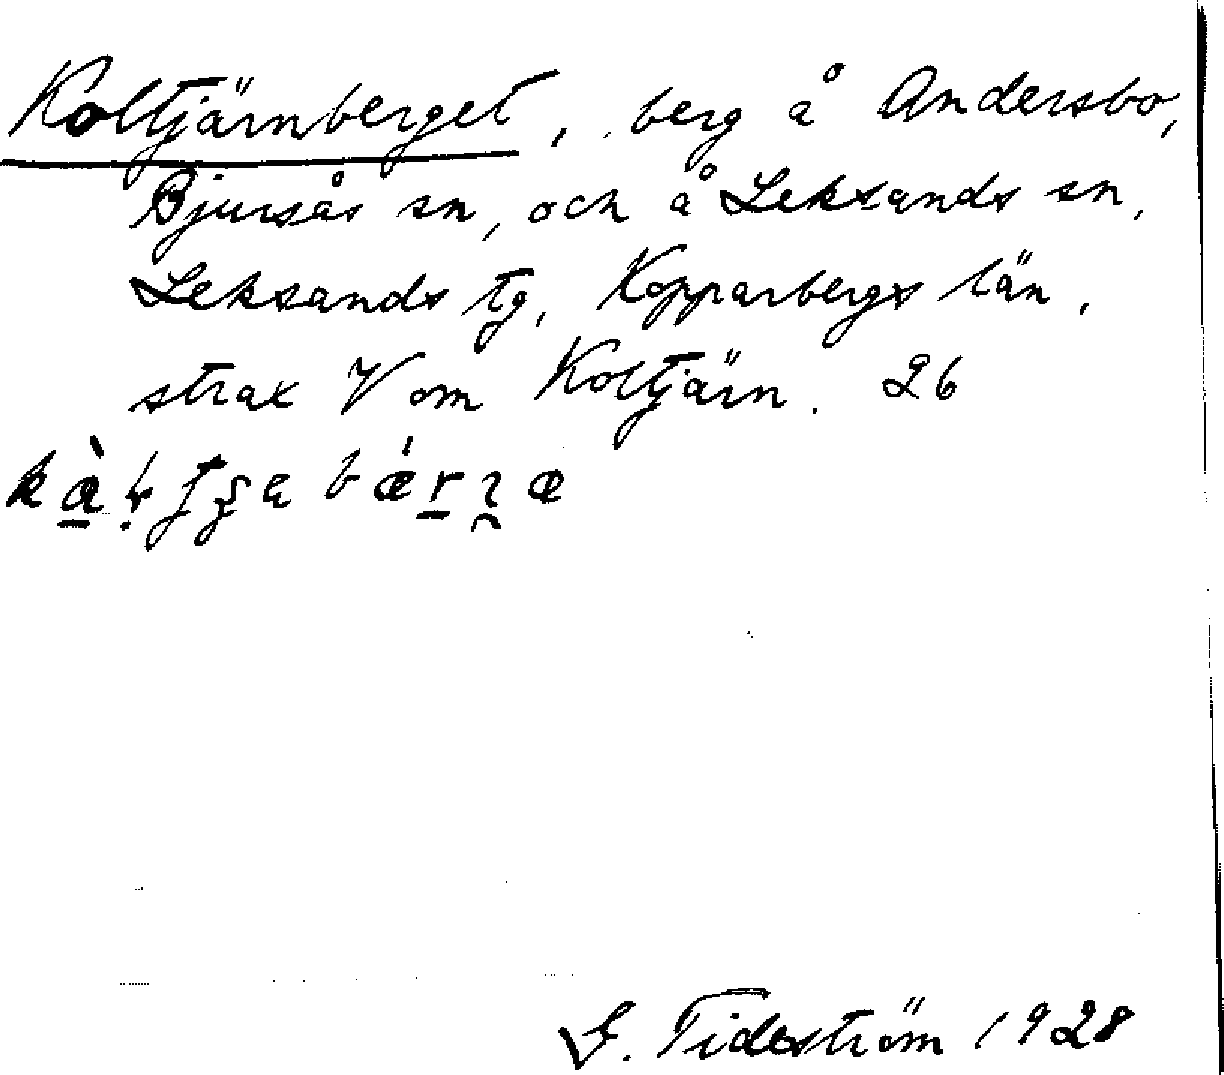 Koltjärnberget, berg å Andersbo,
Bjursås sn, och å Leksands sn,
Leksands tg, Kopparbergs län,
strax V om Koltjärn. 26
G. Tideström 1928